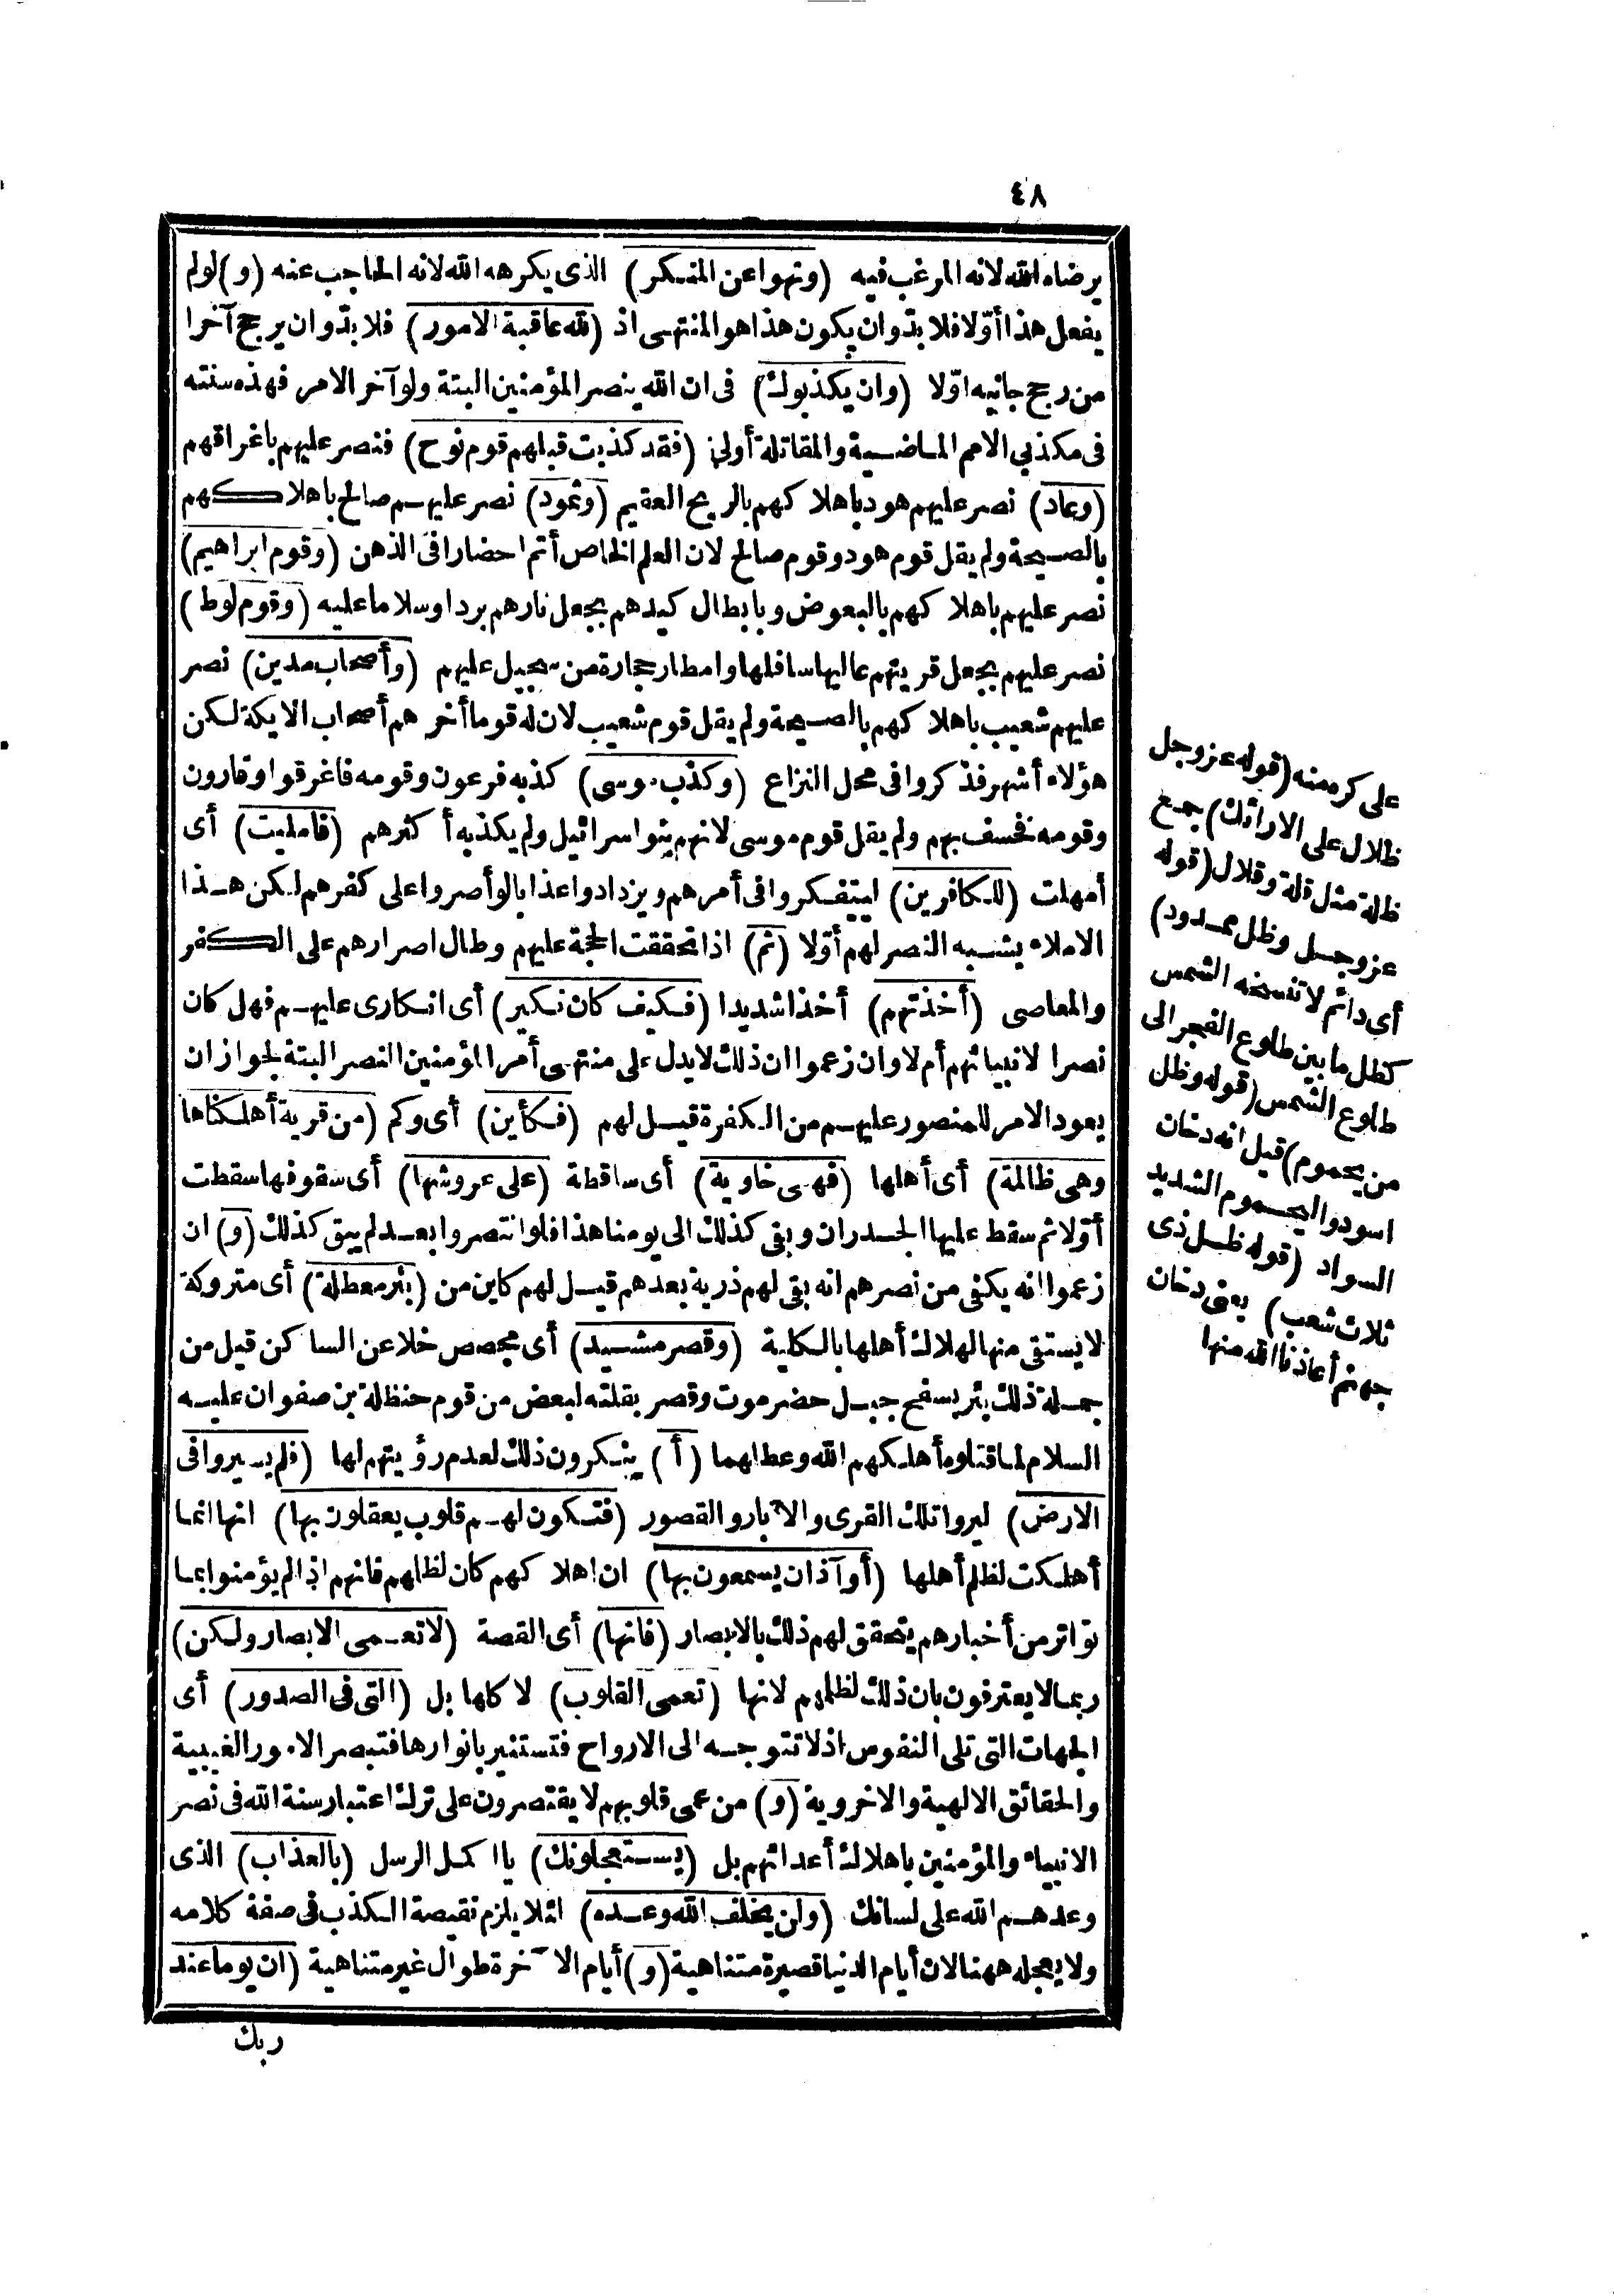 ٤٨
يرضاه الله لانه المرغب فيه (ونهوا عن المنكر) الذى يكرهه الله لانه الحاجب عنه (و) لولم
يفعل هذا أوّلا فلا بدّ وان يكون هذا هو المنتهى اذ (لله عاقبة الامور) فلا بدّ وان يرجح آخرا
من رجح جانبه اوّلا (وان يكذبوك) فى ان الله ينصر المؤمنين البتة ولو آخر الامر فهذه سنته
فى مكذبى الامم الماضية والمقاتلة أولى (فقد كذبت قبلهم قوم نوح) فنصر عليهم باغراقهم
(وعاد) نصر عليهم هود باهلاكهم بالريح العقيم (وثمود) نصر عليهم صالح باهلاكهم
بالصيحة ولم يقل قوم هود وقوم صالح لان العلم الخاص أتم احضارا فى الذهن (وقوم ابراهيم)
نصر عليهم باهلاكهم بالبعوض وبابطال كيدهم بجعل نارهم بردا وسلاما عليه (وقوم لوط)
نصر عليهم بجعل قريتهم عاليها سافلها وامطار حجارة من سجيل عليهم (وأصحاب مدين) نصر
عليهم شعيب باهلاكهم بالصيحة ولم يقل قوم شعيب لان له قوما أخر هم أصحاب الايكة لكن
هؤلاء أشهر فذكروا فى محل النزاع (وكذب موسى) كذبه فرعون وقومه فاغرقوا وقارون
وقومه فخسف بهم ولم يقل قوم موسى لانهم بنو اسرائيل ولم يكذبه أكثرهم (فامليت) أى
أمهلت (للكافرين) ليتفكروا فى أمرهم ويزدادوا عذابا لو أصروا على كفرهم لكن هذا
الاملاء يشبه النصر لهم أوّلا (ثم) اذا تحققت الحجة عليهم وطال اصرارهم على الكفر
والمعاصى (أخذتهم) أخذا شديدا (فكيف كان نكير) أى انكارى عليهم فهل كان
نصرا لانبيائهم أم لا وان زعموا ان ذلك لا يدل على منتهى أمر المؤمنين النصر البتة لجواز ان
يعود الامر للمنصور عليهم من الكفرة قيل لهم (فكأين) أى وكم (من قرية أهلكناها
وهى ظالمة) أى أهلها (فهى خاوية) أى ساقطة (على عروشها) أى سقوفها سقطت
أوّلا ثم سقط عليها الجدران وبقى كذلك الى يومنا هذا فلو انتصروا بعد لم يبق كذلك (و) ان
زعموا انه يكفى من نصرهم انه بقى لهم ذرية بعدهم قيل لهم كاين من (بئر معطلة) أى متروكة
لا يستقى منها لهلاك أهلها بالكلية (وقصر مشيد) أى مجصص خلا عن الساكن قيل من
جملة ذلك بئر بسفح جبل حضرموت وقصر بقلته لبعض من قوم حنظلة بن صفوان عليه
السلام لما قتلوه أهلكهم الله وعطلهما (أ) ينكرون ذلك لعدم رؤيتهم لها (فلم يسيروا فى
الارض) ليروا تلك القرى والآبار والقصور (فتكون لهم قلوب يعقلون بها) انها انما
أهلكت لظلم أهلها (أو آذان يسمعون بها) ان اهلاكهم كان لظلمهم فانهم اذ لم يؤمنوا بما
تواتر من أخبارهم يتحقق لهم ذلك بالابصار (فانها) أى القصة (لا تعمى الابصار ولكن)
ربما لا يعترفون بان ذلك لظلمهم لانها (تعمى القلوب) لا كلها بل (التى فى الصدور) أى
الجهات التى تلى النفوس اذ لا تتوجه الى الارواح فتستنير بانوارها فتبصر الامور الغيبية
والحقائق الالهية والاخروية (و) من عمى قلوبهم لا يقتصرون على ترك اعتبار سنة الله فى نصر
الانبياء والمؤمنين باهلاك أعدائهم بل (يستعجلونك) يا اكمل الرسل (بالعذاب) الذى
وعدهم الله على لسانك (ولن يخلف الله وعده) لئلا يلزم نقيصة الكذب فى صفة كلامه
ولا يعجله ههنا لان أيام الدنيا قصيرة متناهية (و) أيام الآخرة طوال غير متناهية (ان يوما عند
ربك
على كره منه (قوله عز وجل
ظلال على الارائك) جمع
ظلة مثل قلة وقلال (قوله
عز وجل وظل ممدود)
أى دائم لا تنسخه الشمس
كظل ما بين طلوع الفجر الى
طلوع الشمس (قوله وظل
من يحموم) قيل انه دخان
اسود واليحموم الشديد
السواد (قوله ظل ذى
ثلاث شعب) يعنى دخان
جهنم أعاذنا الله منها